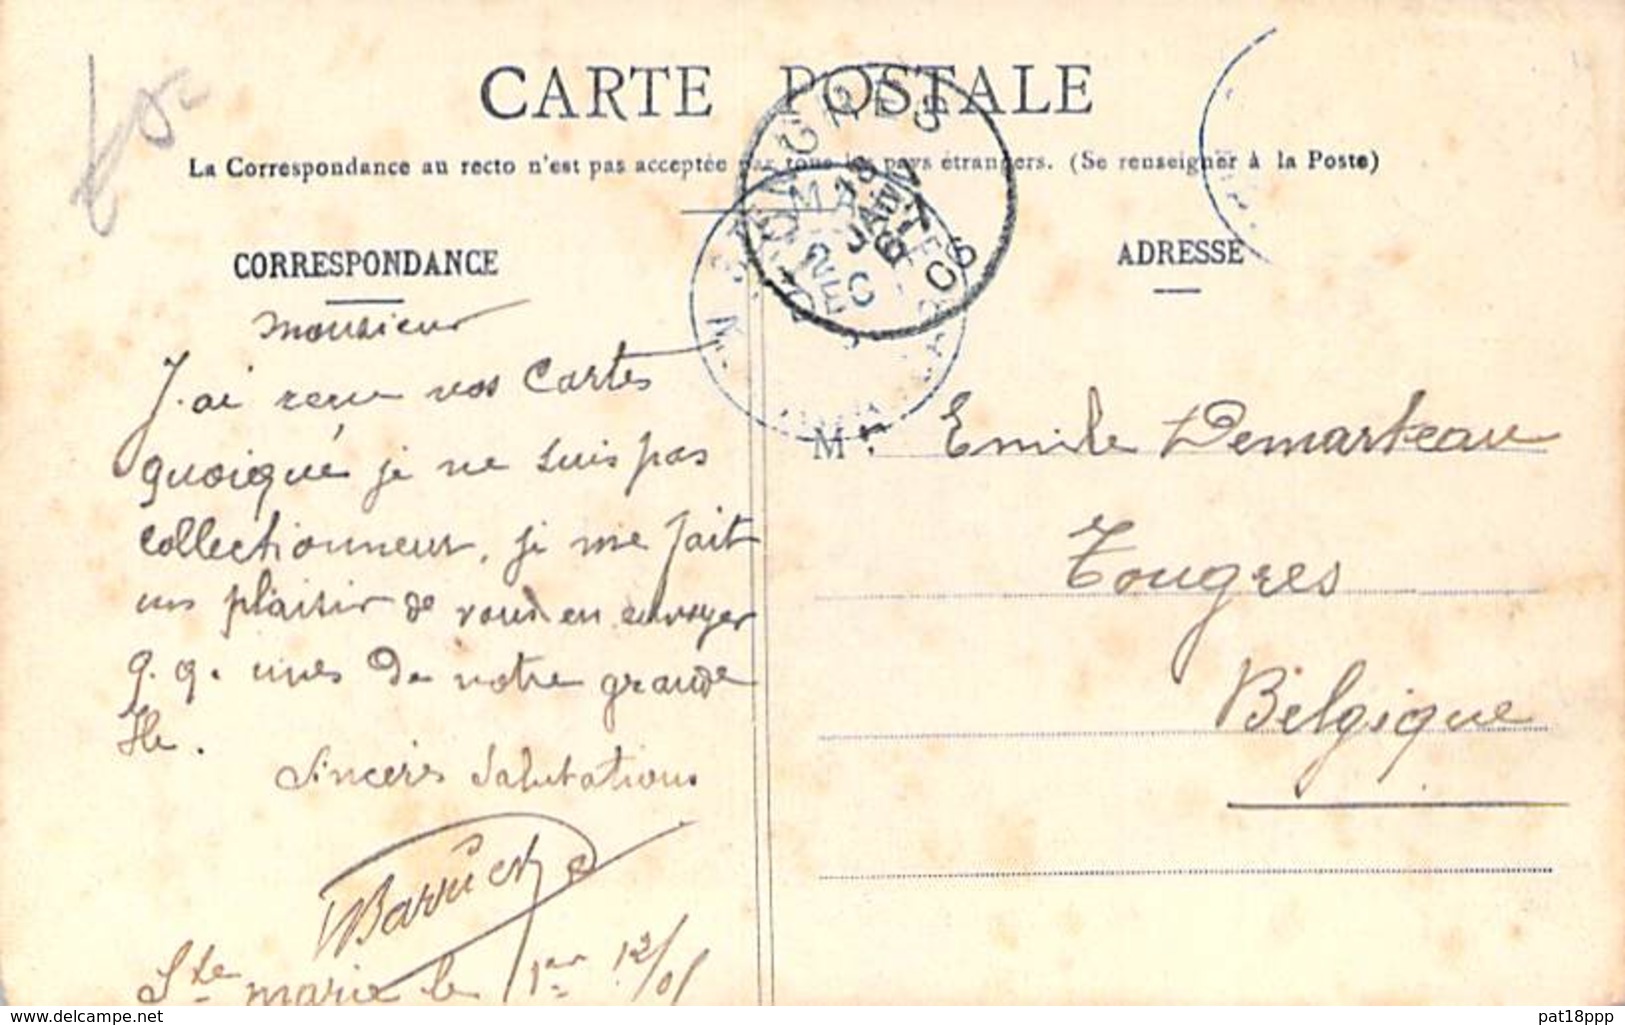 CARTE POSTALE
La Correspondance au recto n'est pas acceptée par tous les pays étrangers. (Se renseigner à la Poste)
CORRESPONDANCE
Monsieur
J'ai recu vos Cartes
quoiqué je ne suis pas
collectionneur, je me fait
un plaisir de vous en envoyer
q. q. unes de notre grande
Ile.
Sincères Salutations
Ste marie le 1er 12/05
ADRESSE
M. Emile Demarteau
Tongres
Belgique
delcampe.net
pat18ppp